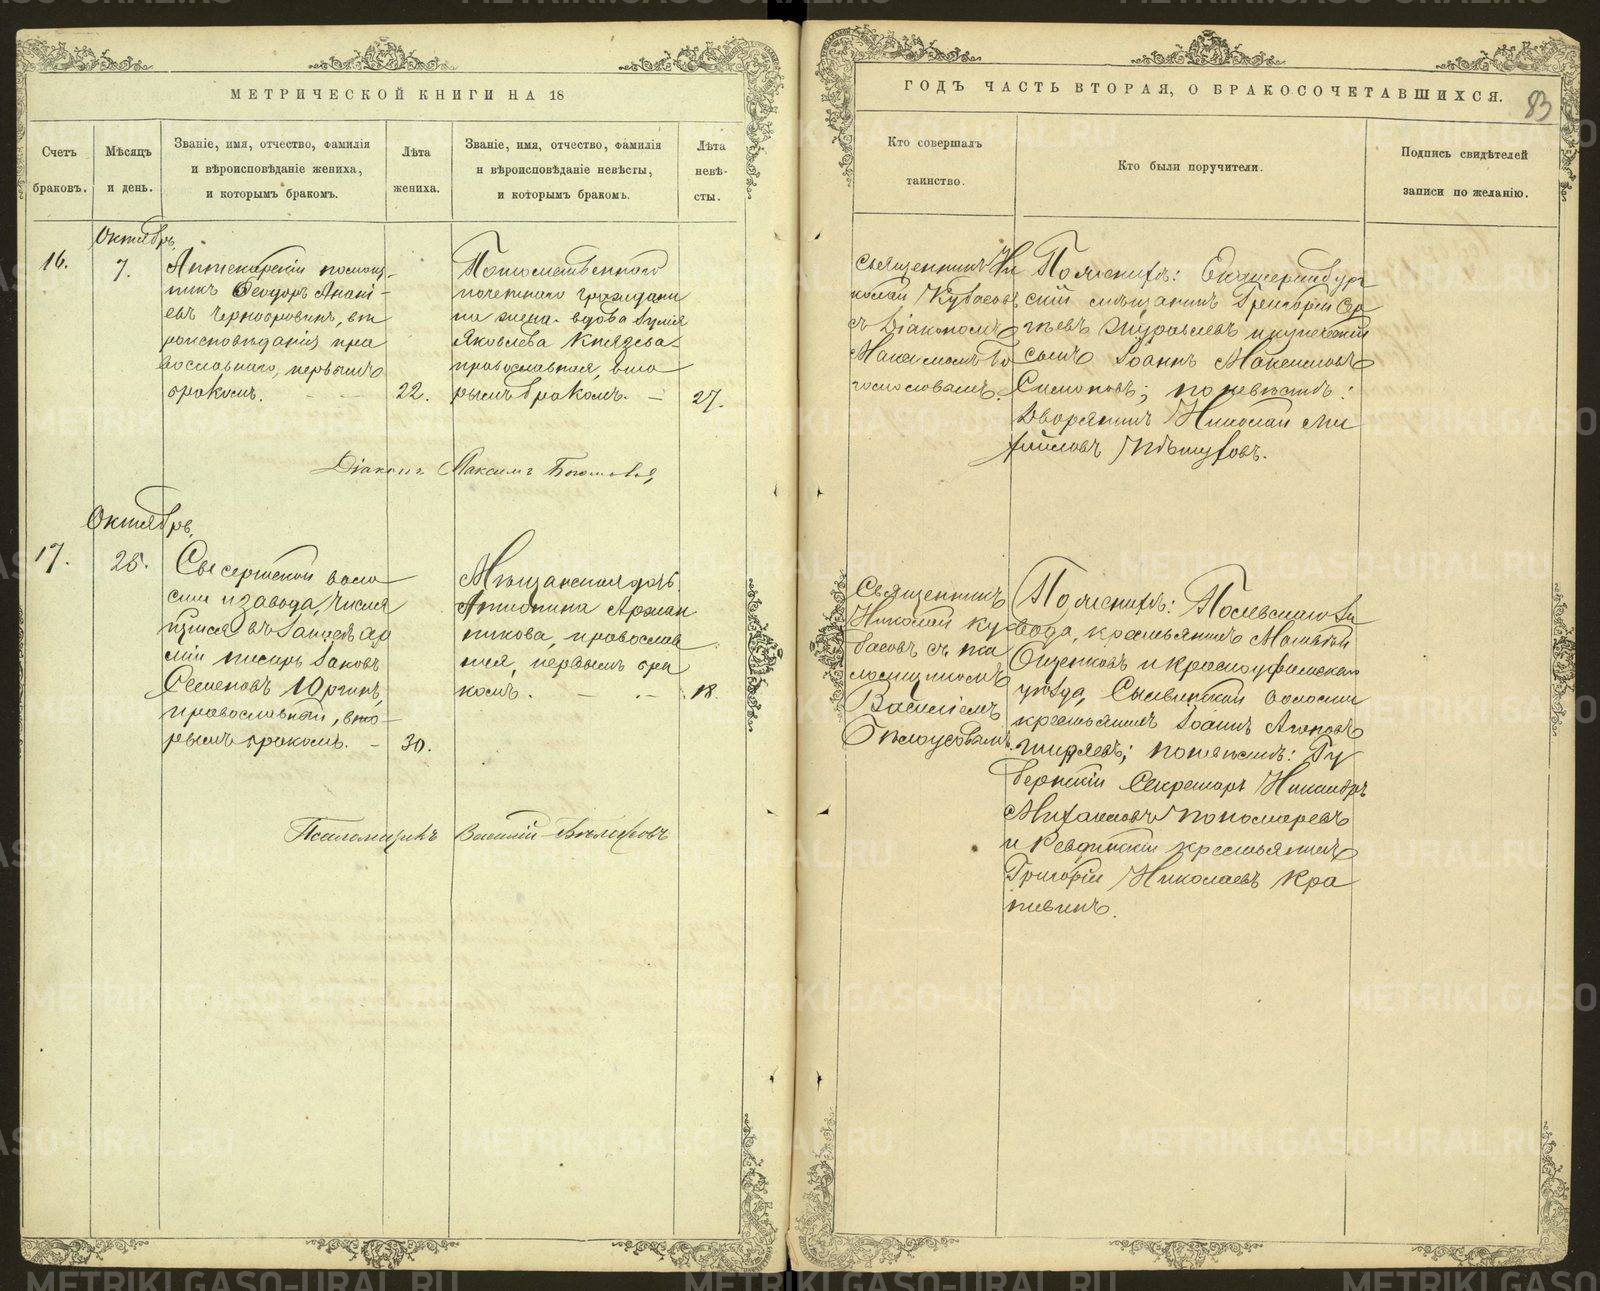 МЕТРИЧЕСКОЙ КНИГИ НА 18
Счетъ
браковъ.
Мѣсяцъ
и день.
Званіе, имя, отчество, фамилія
и вѣроисповѣданіе жениха,
и которымъ бракомъ.
Лѣта
жениха.
Званіе, имя, отчество, фамилія
и вѣроисповѣданіе невѣсты,
и которымъ бракомъ.
Лѣта
невѣ-
сты.
16.
Октябрь.
7.
Аптекарскій помощ-
никъ Ѳеодоръ Анані-
евъ Чернобровинъ, вѣ
роисповѣданія пра
вославнаго, первымъ
бракомъ.
22.
Потомственнаго
почетнаго гражданина
жена вдова Іулія
Яковлева Князева
православная, вто
рымъ бракомъ.
27.
Діаконъ Максимъ Богословъ
17.
Октябрь.
25.
Сысертской воло
сти и завода, числя
щійся въ запасѣ ар
міи писарь Іаковъ
Семеновъ Юргинъ,
православный, вто-
рымъ бракомъ.
30.
Мѣщанская дочь
Антонина
православ
ная, первымъ бра
комъ.
18.
Псаломщикъ Василій Бѣлоусовъ
ГОДЪ ЧАСТЬ ВТОРАЯ, О БРАКОСОЧЕТАВШИХСЯ.
83
Кто совершалъ
таинство.
Кто были поручители.
Подпись свидѣтелей
записи по желанію.
Священникъ Ни
колай Кубасовъ
съ Діакономъ
Максимомъ Бо
гословымъ.
По женихѣ: Екатеринбург
скій мѣщанинъ Григорій Сер
гѣевъ Журавлевъ и купеческій
сынъ Іоаннъ Максимовъ
Симоновъ; по невѣстѣ:
Дворянинъ Николай Ми
хайловъ
Священникъ
Николай Ку
басовъ съ пса
ломщикомъ
Василіемъ
Бѣлоусовымъ.
По женихѣ: Полевскаго за
вода, крестьянинъ Матвѣй
и Красноуфимскаго
уѣзда, волости
крестьянинъ Іоаннъ Агаповъ
Ширяевъ; по невѣстѣ: Гу
бернскій Секретарь Никандръ
Михаиловъ Пономаревъ
и Ревдинскій крестьянинъ
Григорій Николаевъ Кра
пивинъ.
METRIKI.GASO-URAL.RU